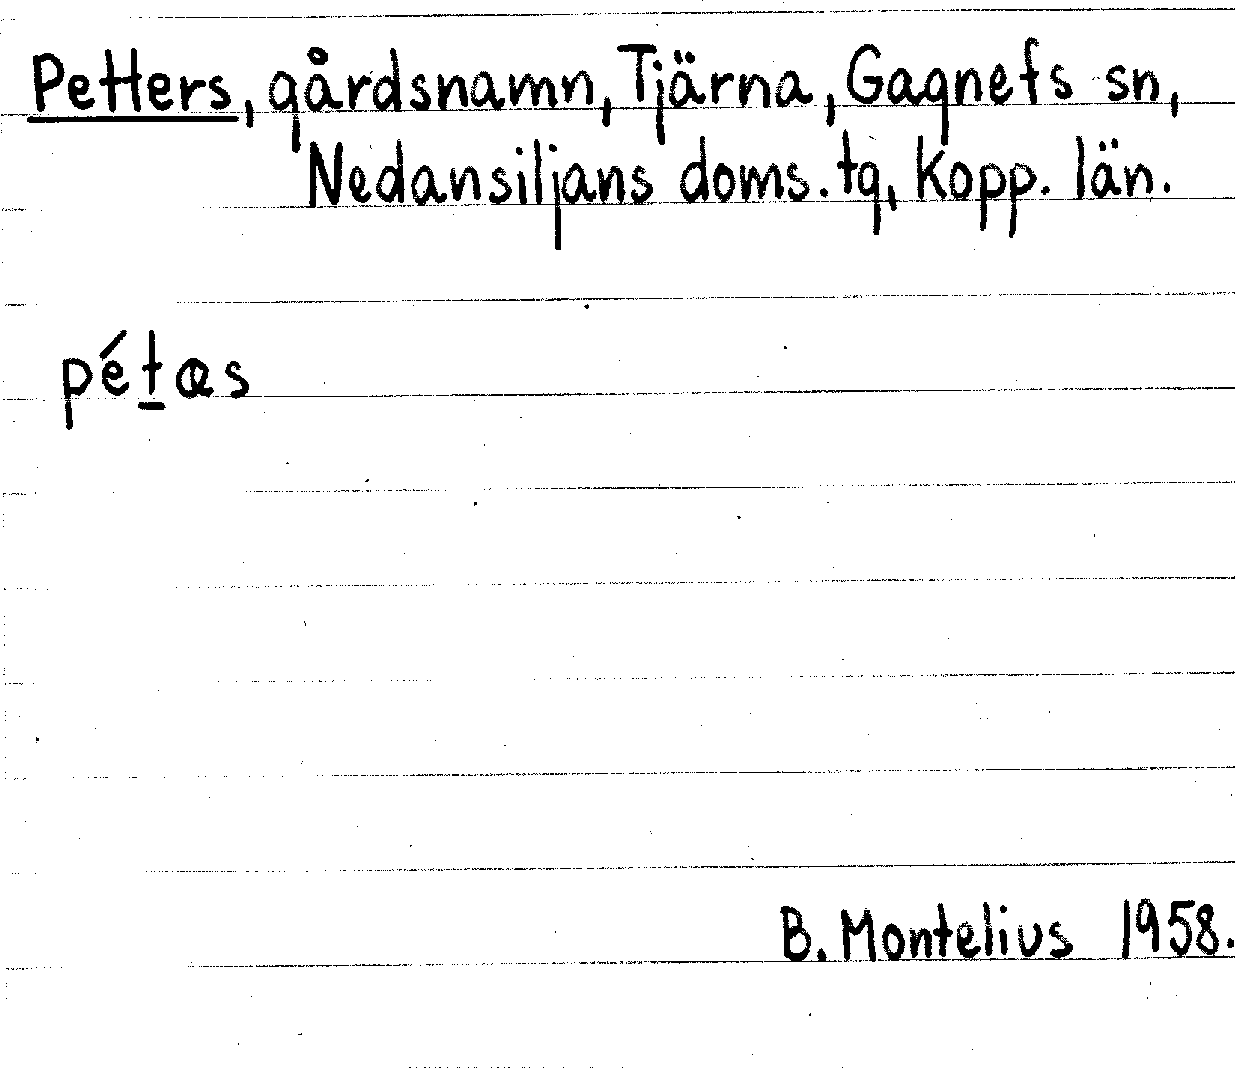 Petters, gårdsnamn, Tjärna, Gagnefs sn,
Nedansiljans doms. tg, Kopp. län.
pét̠æs
B. Montelius 1958.